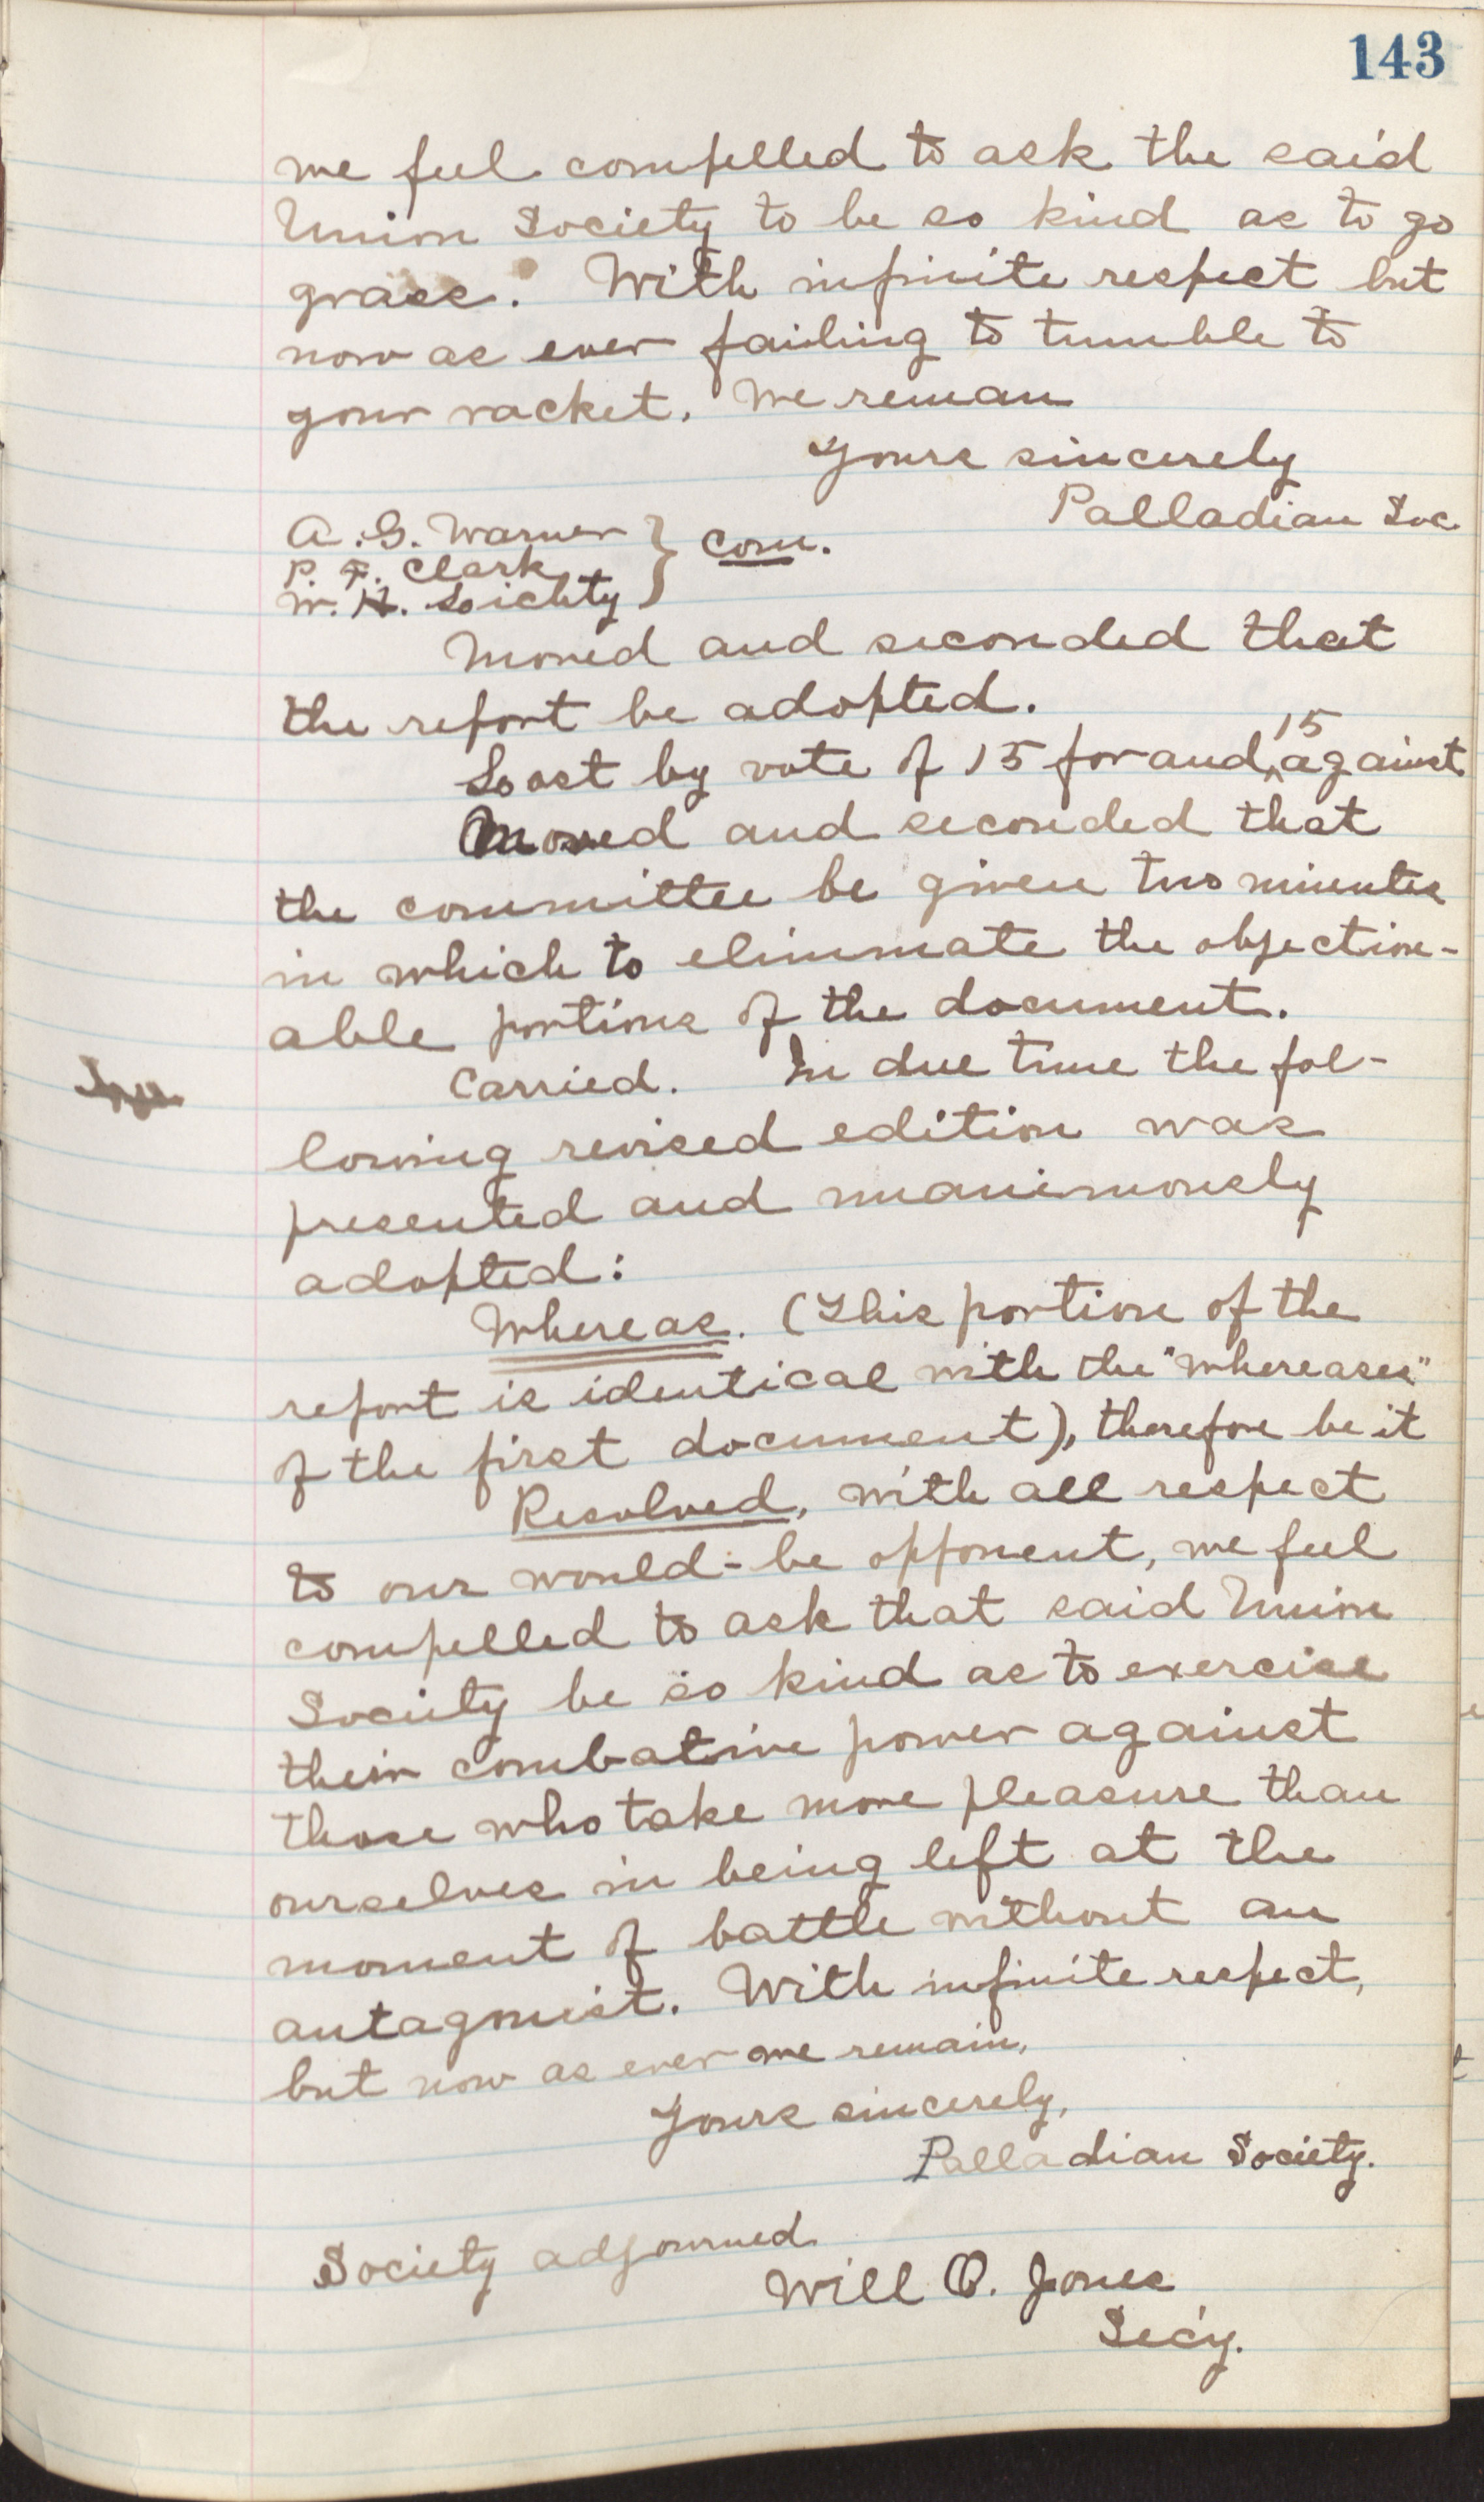 143
we feel compelled to ask the said
Union Society to be so kind as to go
grass. With infinite respect but
now as ever failing to tumble to
your racket, we reman
Yours sincerely
Palladian Soc.
A. G. Warner
P. F. Clark } Com.
W. H. Lichty
Moved and seconded that
the report be adopted.
Lost by vote of 15 for and 15 against
Moved and seconded that
the committee be given two minutes
in which to eliminate the objection-
able portions of the document.
Carried. In due time the fol-
lowing revised edition was
presented and unanimously
adopted:
Whereas. (This portion of the
report is identical with the "whereases"
of the first document), therefore be it
Resolved, with all respect
to our would-be opponent, we feel
compelled to ask that said Union
Society be so kind as to exercise
their combative power against
those who take more pleasure than
ourselves in being left at the
moment of battle without an
antagonist. With infinite respect,
but now as ever we remain,
Yours sincerely,
Palladian Society.
Society adjourned
Will O. Jones
Sec'y.